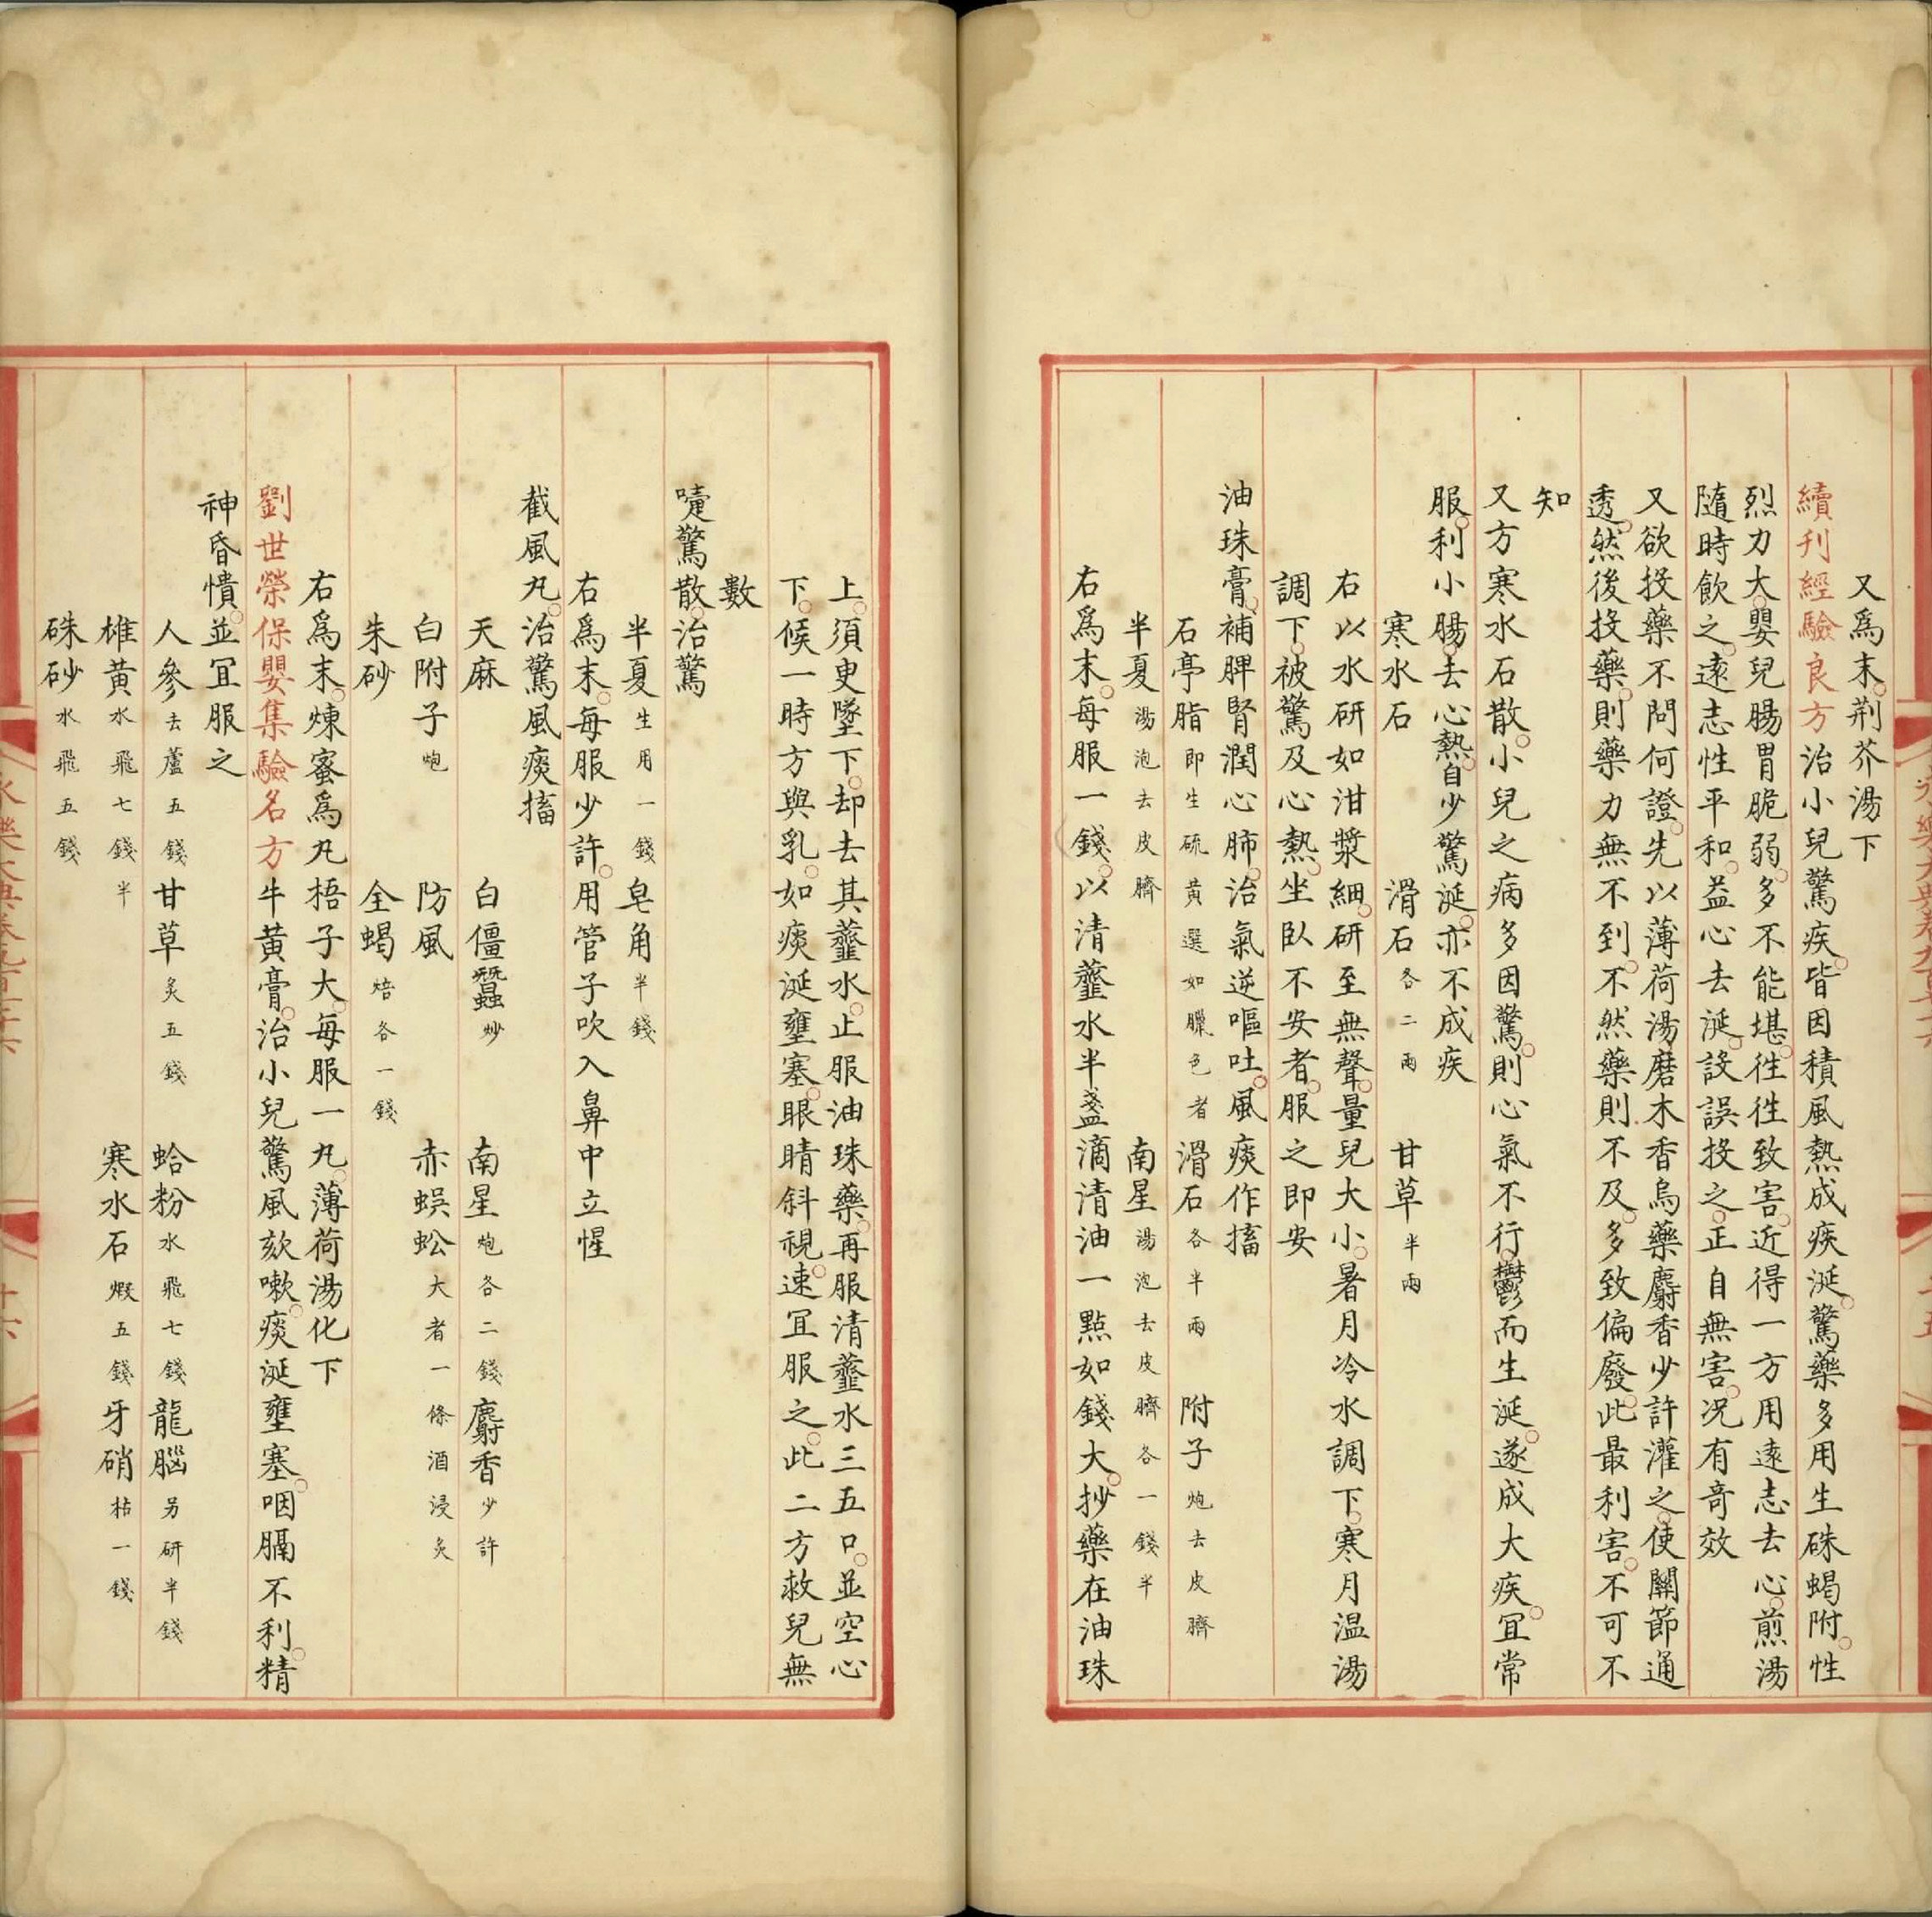 又為末。荆芥湯下
續刊經驗良方治小兒驚疾。皆因積風熱成疾涎。驚藥多用生硃蝎附。性
烈力大。嬰兒腸胃脆弱。多不能堪。徃徃致害。近得一方用遠志去心。煎湯
隨時飲之。遠志性平和。益心去涎。設誤投之。正自無害。况有竒效
又欲投藥不問何證。先以薄荷湯磨木香烏藥麝香少許灌之。使關節通
透。然後投藥。則藥力無不到。不然藥則不及。多致偏廢。此最利害。不可不
知
又方寒水石散。小兒之病多因驚。則心氣不行。鬱而生涎。遂成大疾。宜常
服。利小腸。去心熱。自少驚涎。亦不成疾
寒水石 滑石各二兩 甘草半兩
右以水研如泔漿細。研至無聲。量兒大小。暑月冷水調下。寒月温湯
調下。被驚及心熱。坐臥不安者。服之即安
油珠膏。補脾腎潤心肺。治氣逆嘔吐。風痰作搐
石亭脂即生硫黄選如臘色者 滑石各半兩 附子炮去皮臍
半夏湯泡去皮臍 南星湯泡去皮臍各一錢半
右為末。每服一錢。以清虀水半盞滴清油一點如錢大。抄藥在油珠
上。須㪅墜下。却去其虀水。止服油珠藥。再服清虀水三五口。並空心
下。候一時方與乳。如痰涎壅塞。眼睛斜視。速宜服之。此二方救兒無
數
嚏驚散。治驚
半夏生用一錢 皂角半錢
右為末。每服少許。用管子吹入鼻中立惺
截風丸。治驚風痰搐
天麻 白僵蠶炒 南星炮各二錢 麝香少許
白附子炮 防風 赤蜈蚣大者一條酒浸炙
朱砂 全蝎焙各一錢
右為末。煉蜜為丸梧子大。每服一丸。薄荷湯化下
劉世榮保嬰集驗名方牛黄膏。治小兒驚風欬嗽。痰涎壅塞。咽膈不利。精
神昏憒。並宜服之
人參去蘆五錢 甘草炙五錢 蛤粉水飛七錢 龍腦另研半錢
雄黄水飛七錢半 寒水石煅五錢 牙硝枯一錢
硃砂水飛五錢